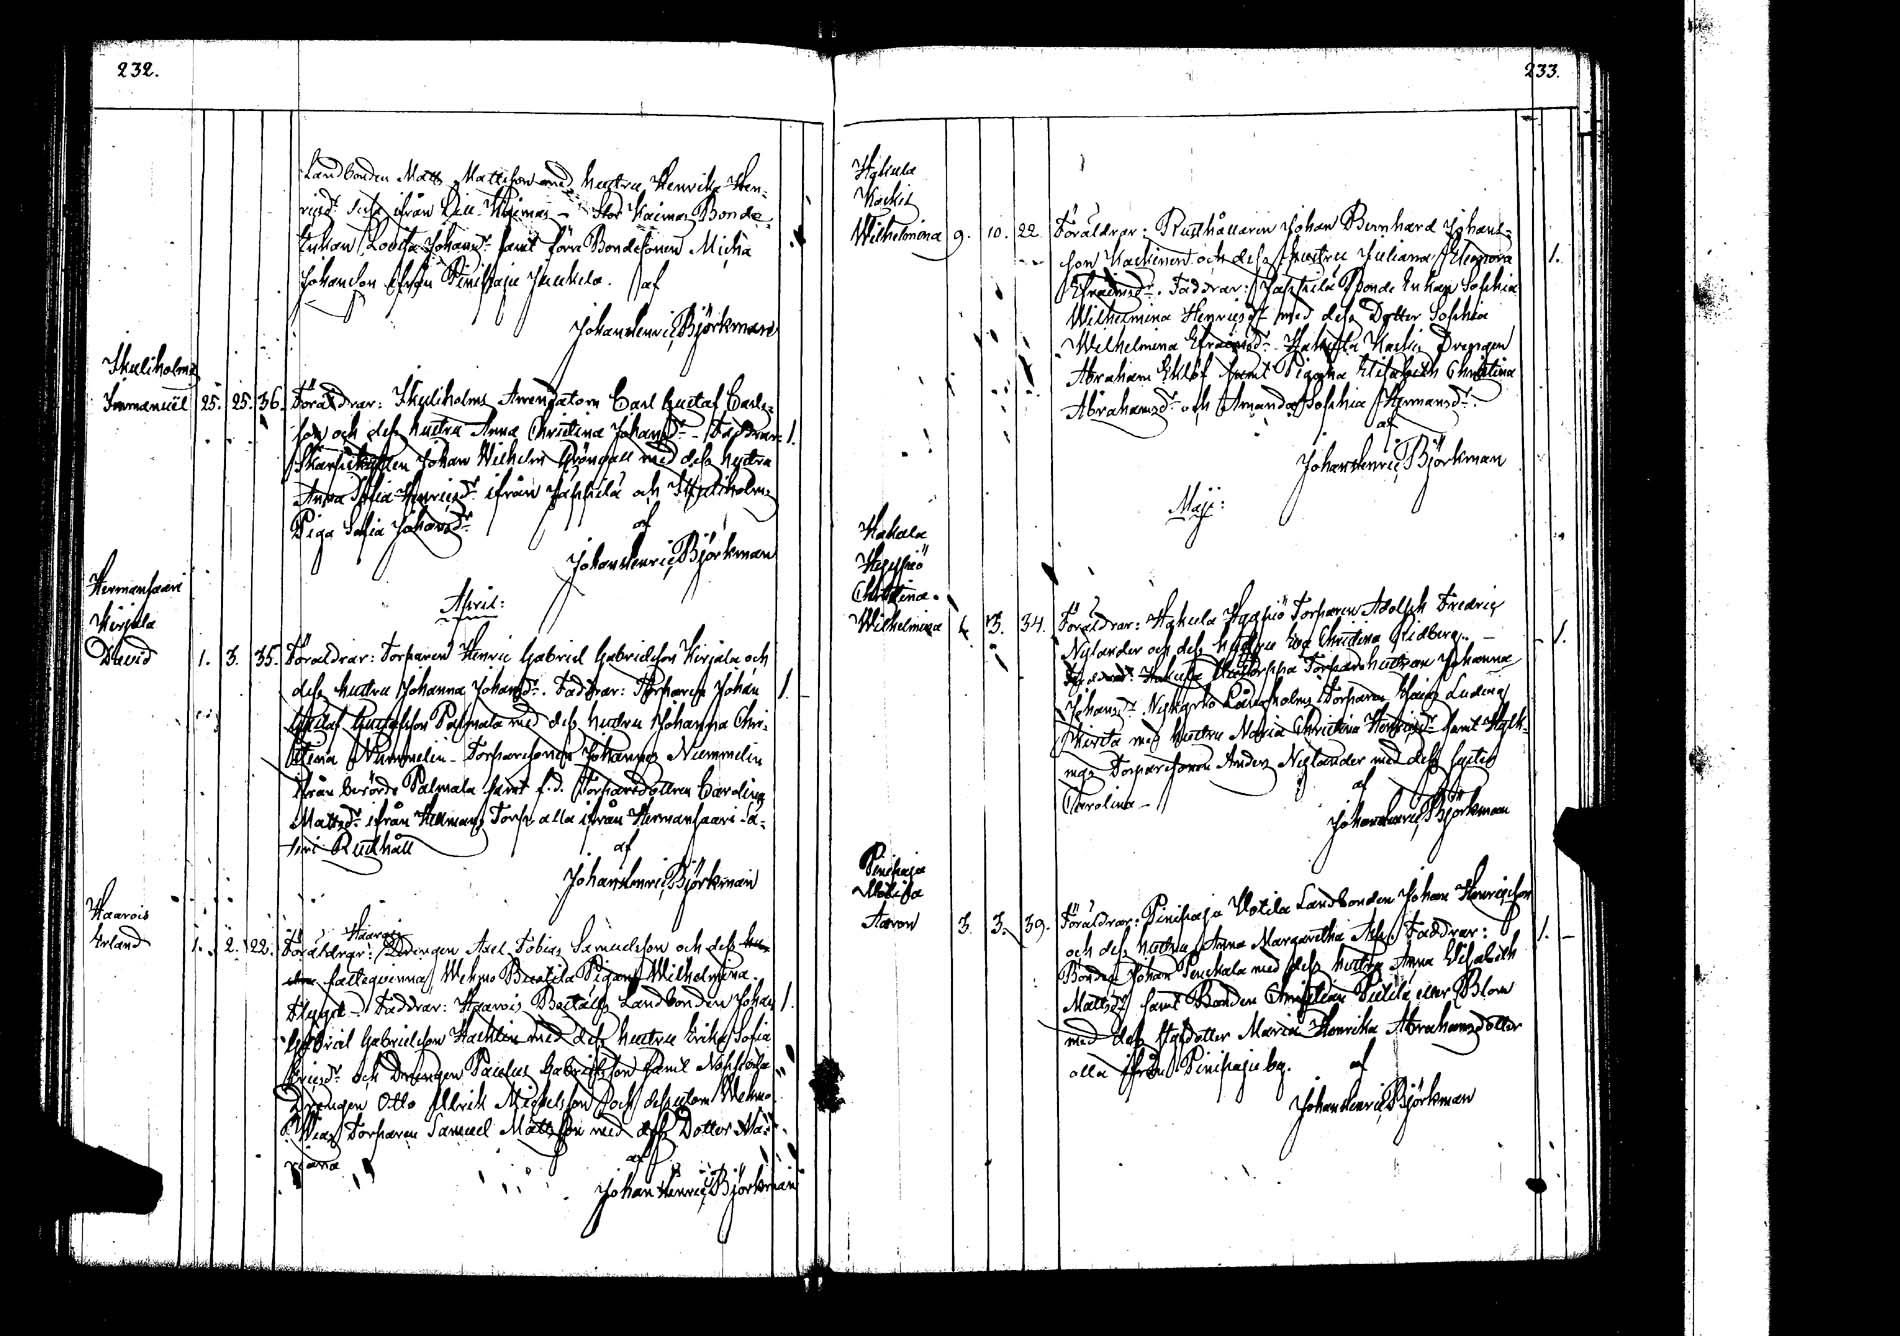 232.
Landbonden Matts Mattsson med hustru Henrika Hen-
ricsdr ifrån Lill Kaimas - Stor Kaimas Bonde
Enkan Lovisa Johansdr samt förra Bondesonen Micha
Johanson ifrån Pinipaju Juckola. af
Johan Henric Björkman
Skuliholms
Immanuël 25. 25. 36. Föräldrar: Skuliholms Arrendatorn Carl Gustaf Carls-
son och dess hustru Anna Christina Johansdr - Faddrar: 1.
Johan Wilhelm Grönvall med dess hustru
Anna Sofia Henricsdr ifrån Jäppilä och Skuliholms
Piga Sofia Johansdr af
Johan Henric Björkman
April:
Hermansaari
Kirjala
David 1. 3. 35. Föräldrar: Torparen Henric Gabriel Gabrielsson Kirjala och
dess hustru Johanna Johansdr. Faddrar: Torparen Johan 1.
Gustaf Gustafsson Palmala med dess hustru Johanna Chri-
stina Nummelin - Torparesonen Johannes Nummelin
ifrån berörde Palmala samt f.d. Torparedottren Carolina
Mattsdr ifrån Hermans Torp alla ifrån Hermansaari Sä-
teri Rusthåll af
Johan Henric Björkman
Haarois
Erland 1. 2. 22. Föräldrar: Haarois Drengen Axel Tobias Samuelsson och dess hu-
stru fästeqvinna Wehmo Pigan Wilhelmina
Flygt - Faddrar: Haarois Landbonden Johan 1.
Gabriel Gabrielsson med dess hustru Erika Sofia
Ericsdr och Drengen Paulus Gabrielsson samt
Drengen Otto Ulrik Michelsson och dessutom Wehmo
Torparen Samuel Mattsson med dess Dotter Ma-
riana af
Johan Henric Björkman
233.
Hakula
Kackis
Wilhelmina 9. 10. 22. Föräldrar: Rusthållaren Johan Bernhard Johans-
son Kackinen och dess hustru Juliana Eleonora 1.
Efraimsdr. Faddrar: Jäppilä Bonde Enkan Sophia
Wilhelmina Henricsdr med dess Dotter Sophia
Wilhelmina Efraimsdr - Hakula Kackis Drengen
Abraham Eklöf samt Pigorna Elisabeth Christina
Abrahamsdr och Amanda Sophia Hermansdr.
af
Johan Henric Björkman
Maji:
Hakula
Christina
Wilhelmina 3. 34. Föräldrar: Hakula Torparen Adolph Fredric
Nylander och dess hustru Eva Christina Ridberg. - 1.
Faddrar: Hakula Torpare hustrun Johanna
Johansdr Torparen
med hustru Maria Christina Henricsdr samt
Torparesonen Anders Nylander med dess syster
Carolina - af
Johan Henric Björkman
Pinipaju
Uotila
Aaron 3. 3. 39. Föräldrar: Pinipaju Uotila Landbonden Johan Henricsson
och dess hustru Anna Margaretha Faddrar: 1.
Bonden Johan Penckala med dess hustru Anna Elisabeth
Mattsdr samt Bonden Christian Pietilä eller Blom
med dess Dotter Maria Henrika Abrahamsdotter
alla ifrån Pinipaju by. af
Johan Henric Björkman